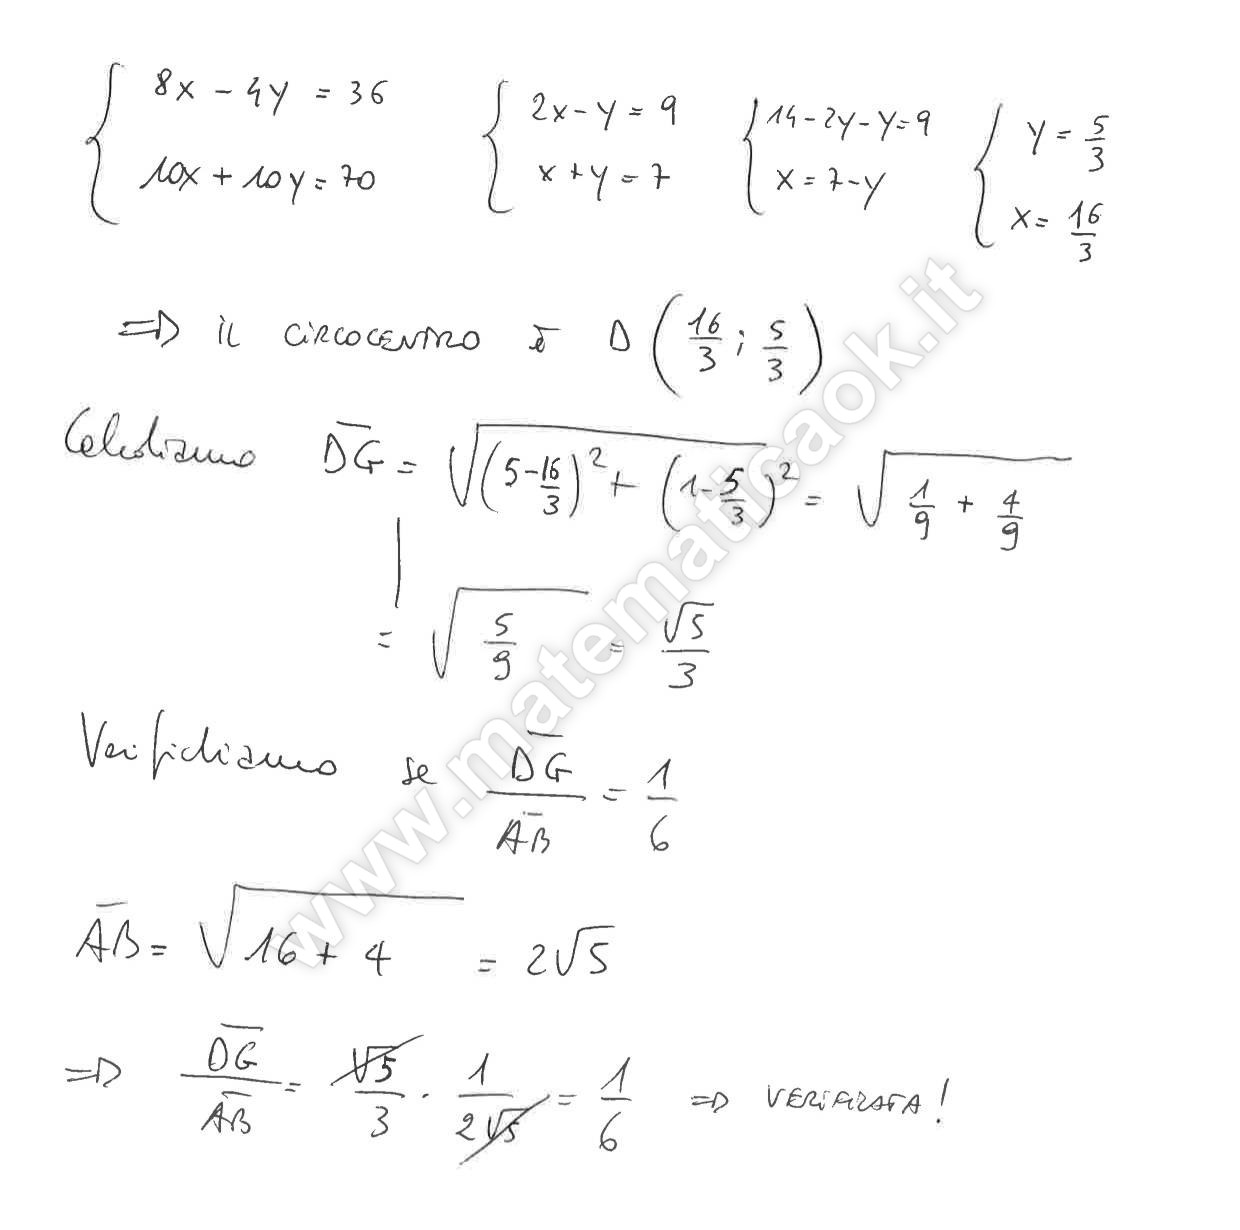 { 8x - 4y = 36 { 2x - y = 9 { 14 - 2y - y = 9 { y = 5/3
10x + 10y = 70 x + y = 7 x = 7 - y x = 16/3
=> il circocentro è D (16/3 ; 5/3)
Calcoliamo DG = √((5 - 16/3)² + (1 - 5/3)²) = √(1/9 + 4/9)
= √(5/9) = √5/3
Verifichiamo se DG/AB = 1/6
AB = √(16 + 4) = 2√5
=> DG/AB = √5/3 · 1/2√5 = 1/6 => VERIFICATA!
www.matematicaok.it